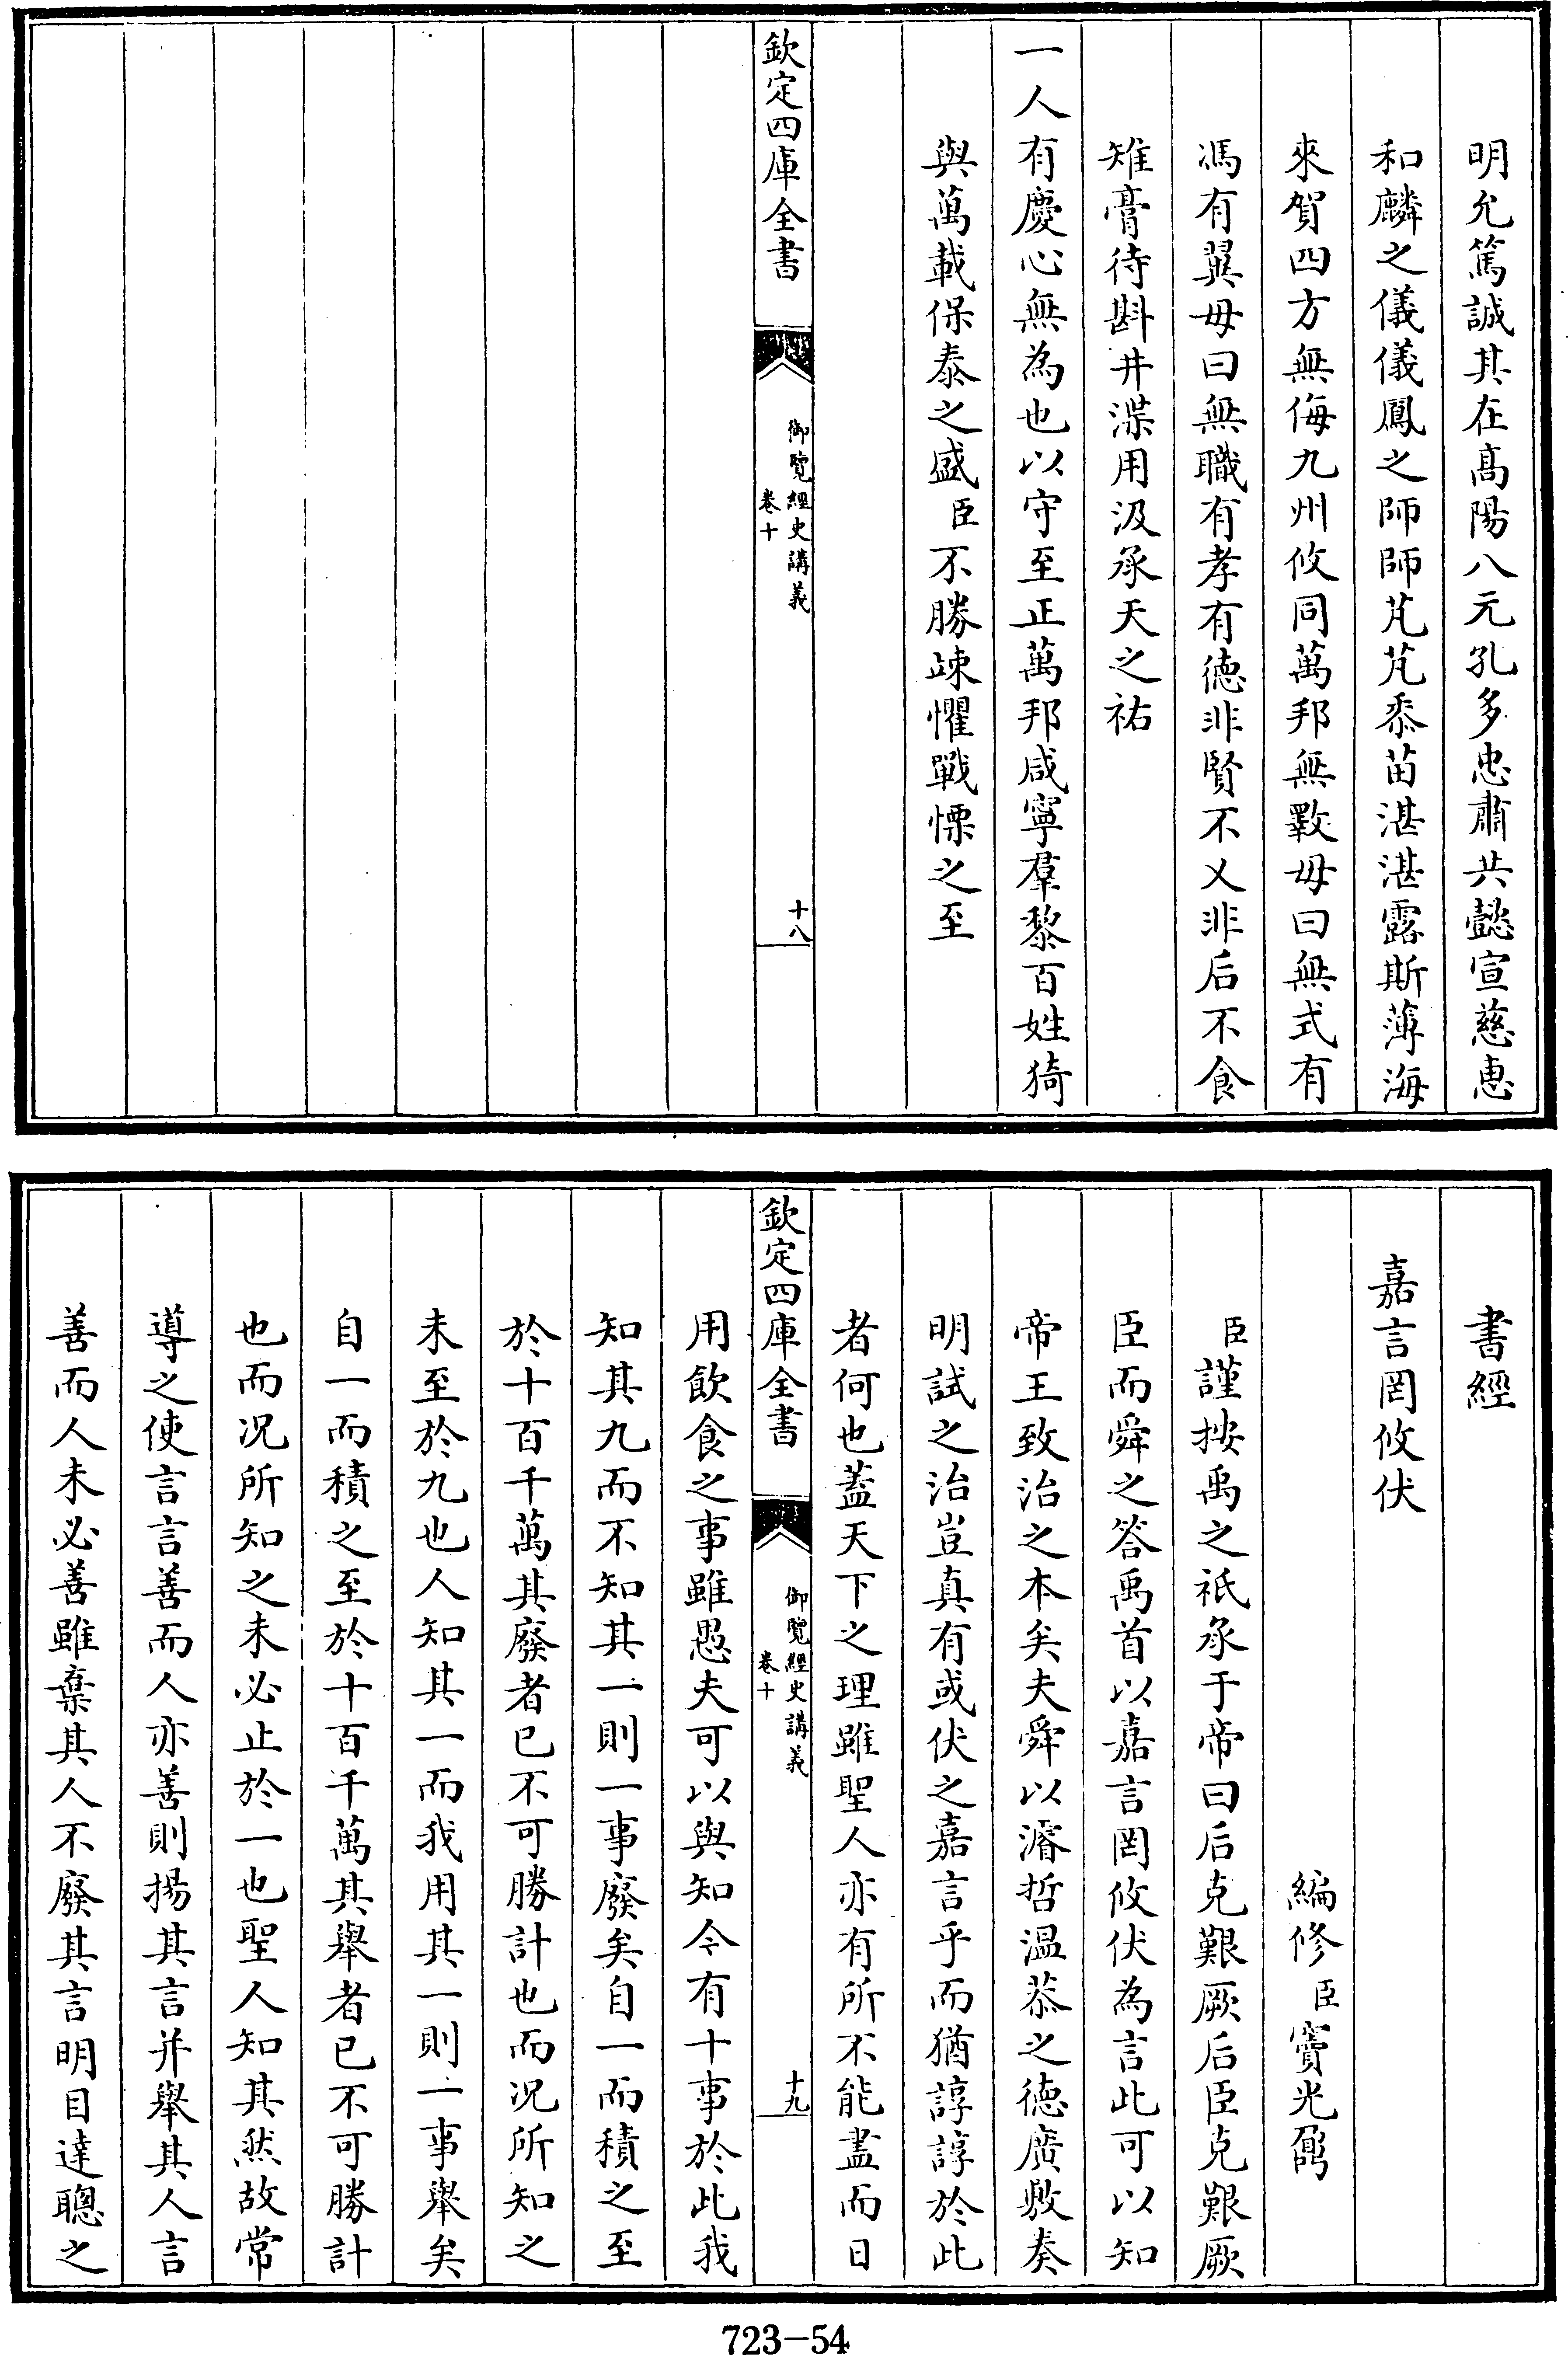 明允篤誠其在髙陽八元孔多忠肅共懿宣慈惠
和麟之儀儀鳳之師師芃芃黍苗湛湛露斯薄海
來賀四方無侮九州攸同萬邦無斁毋曰無式有
馮有翼毋曰無職有孝有徳非賢不乂非后不食
雉膏待斟井渫用汲承天之祐
一人有慶心無為也以守至正萬邦咸寧羣黎百姓猗
與萬載保泰之盛臣不勝竦懼戰慄之至
欽定四庫全書
御覽經史講義
卷十
十八
書經
嘉言罔攸伏
編修臣竇光鼐
臣謹按禹之祇承于帝曰后克艱厥后臣克艱厥
臣而舜之答禹首以嘉言罔攸伏為言此可以知
帝王致治之本矣夫舜以濬哲温恭之徳廣敷奏
明試之治豈真有或伏之嘉言乎而猶諄諄於此
者何也葢天下之理雖聖人亦有所不能盡而日
欽定四庫全書
御覽經史講義
卷十
十九
用飲食之事雖愚夫可以與知今有十事於此我
知其九而不知其一則一事廢矣自一而積之至
於十百千萬其廢者已不可勝計也而况所知之
未至於九也人知其一而我用其一則一事舉矣
自一而積之至於十百千萬其舉者已不可勝計
也而况所知之未必止於一也聖人知其然故常
導之使言言善而人亦善則揚其言并舉其人言
善而人未必善雖棄其人不廢其言明目達聰之
723-54